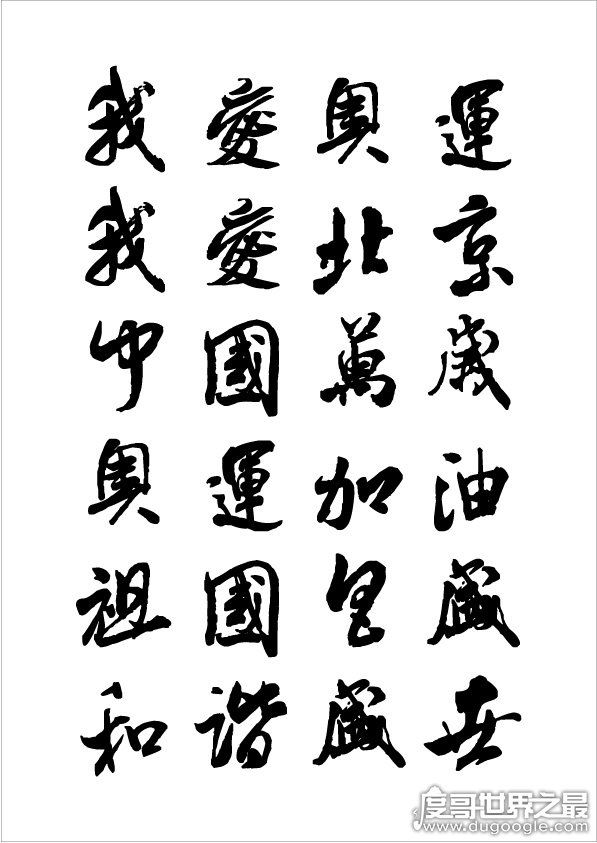 我愛奧運
我愛北京
中國萬歲
奧運加油
祖國昌盛
和諧盛世
度哥世界之最
www.dugoogle.com